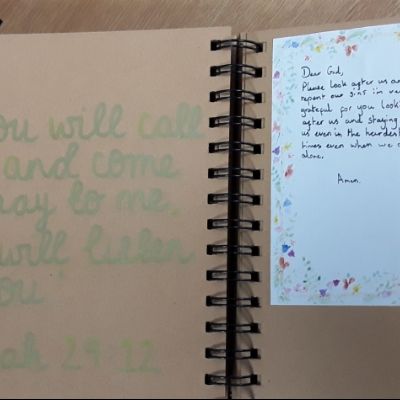 ou will call
and come
ray to me,
will listen
ou
ah 29:12
Dear God,
Please look after us an
repent our sins i'm ver
grateful for you look
after us and staying
us even in the hardest
times even when we
alone.
Amen.